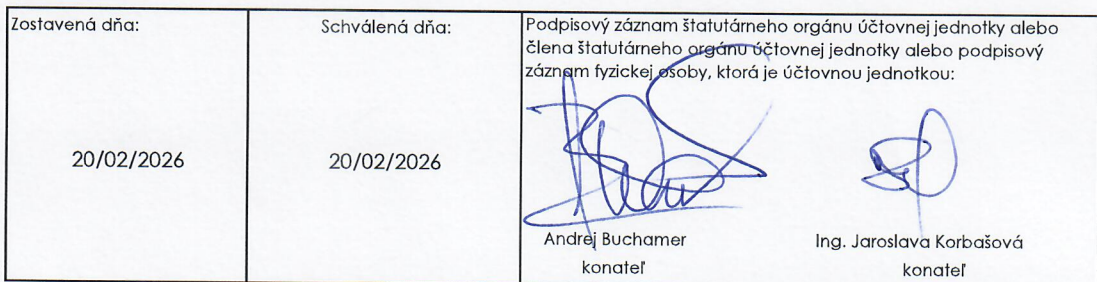 Zostavená dňa:
Schválená dňa:
Podpisový záznam štatutárneho orgánu účtovnej jednotky alebo
člena štatutárneho orgánu účtovnej jednotky alebo podpisový
záznam fyzickej osoby, ktorá je účtovnou jednotkou:
20/02/2026
20/02/2026
Andrej Buchamer
Ing. Jaroslava Korbašová
konateľ
konateľ